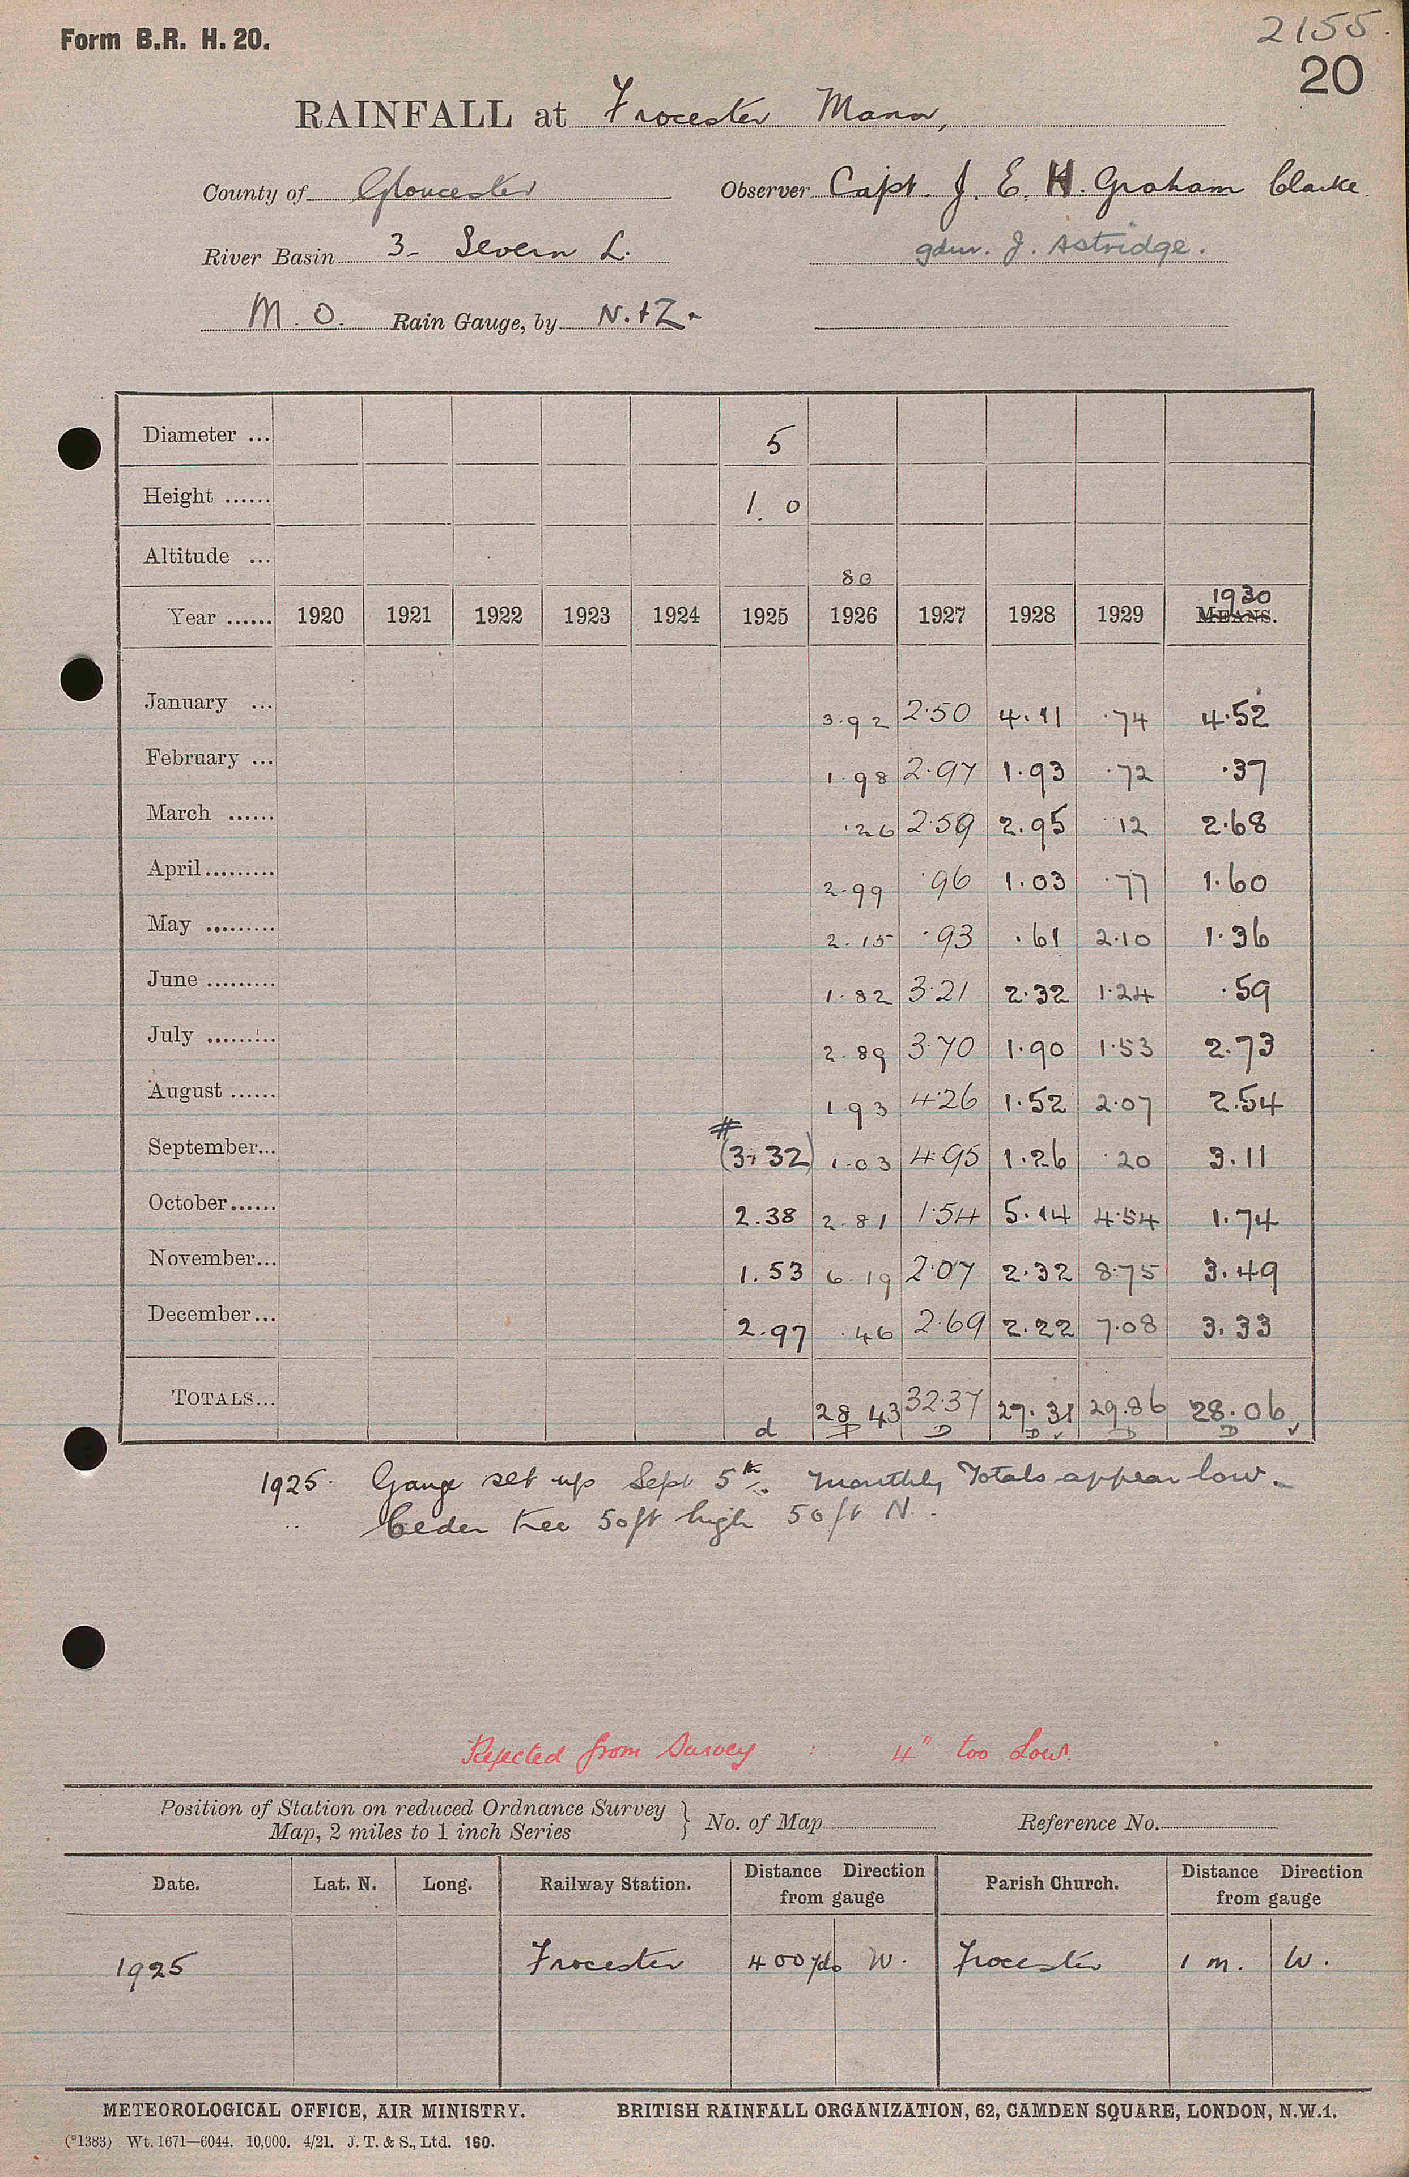 Form B.R. H. 20.
2155.
20
RAINFALL at Frocester Manor,
County of Gloucester Observer Capt. J. E. H. Graham Clarke
River Basin 3- Severn L. gdnr. J. Astridge.
M. O. Rain Gauge, by N. + Z.
Diameter ... 5
Height ...... 1. 0
Altitude ... 80
1930
Year ...... 1920 1921 1922 1923 1924 1925 1926 1927 1928 1929 MEANS.
January ... 3.92 2.50 4.11 .74 4.52
February ... 1.98 2.97 1.93 .72 .37
March ...... .26 2.59 2.95 12 2.68
April ......... 2.99 .96 1.03 .77 1.60
May ......... 2.15 .93 .61 2.10 1.36
June ......... 1.82 3.21 2.32 1.24 .59
July ......... 2.89 3.70 1.90 1.53 2.73
August ...... 1 93 4.26 1.52 2.07 2.54
#
September... (3.32) 1.03 4.95 1.26 .20 3.11
October...... 2.38 2.81 1.54 5.14 4.54 1.74
November... 1.53 6.19 2.07 2.32 8.75 3.49
December... 2.97 .46 2.69 2.22 7.08 3.33
TOTALS... d 28 43 32.37 27.31 29.86 28.06
D D D D D
1925. Gauge set up Sept 5th. Monthly Totals appear low.
" Ceder tree 50ft high 50ft N.
Rejected from Survey : 4" too low.
Position of Station on reduced Ordnance Survey
Map, 2 miles to 1 inch Series } No. of Map Reference No.
Date. Lat. N. Long. Railway Station. Distance Direction from gauge Parish Church. Distance Direction from gauge
1925 Frocester 400 yds W. Frocester 1 m. W.
METEOROLOGICAL OFFICE, AIR MINISTRY. BRITISH RAINFALL ORGANIZATION, 62, CAMDEN SQUARE, LONDON, N.W.1.
(*1383) Wt. 1671—6044. 10,000. 4/21. J. T. & S., Ltd. 160.